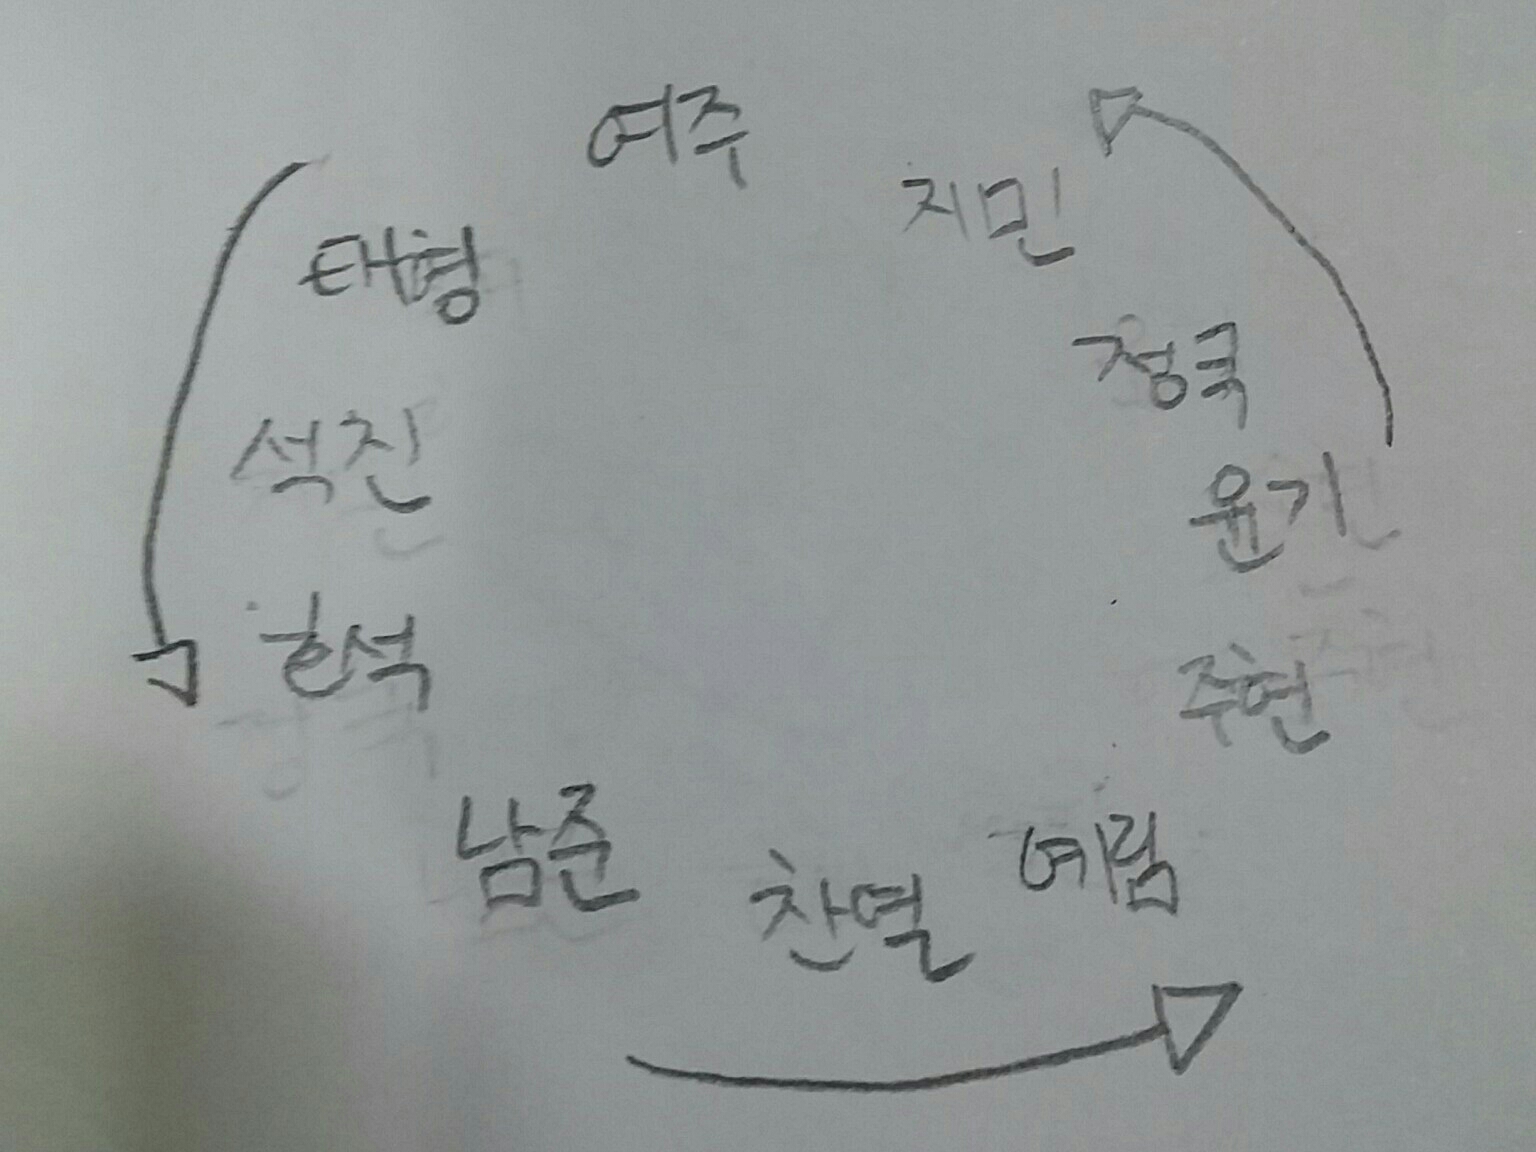 여주
지민
태형
정국
석진
윤기
호석
주현
남준
예림
찬열